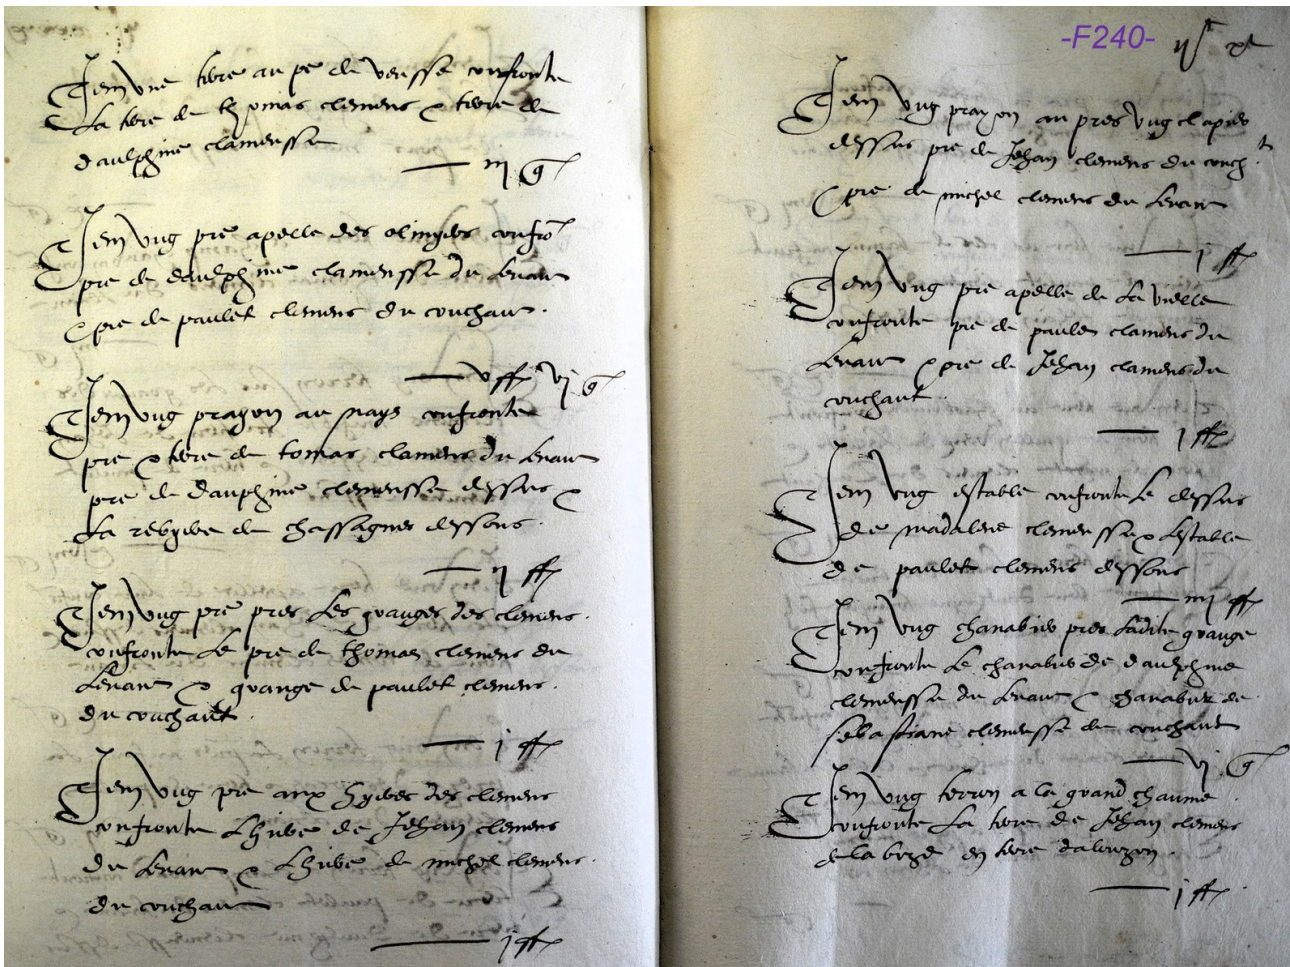 Item une terre au pe de vensse confronte
La terre de thomas clemens & terre de
daulphine clamensse
iij g
Item ung pre apelle des olmyeres confro
pre de daulphine clamensse du levant
& pre de paulet clemens du couchant.
v ff vj g
Item ung prayon au nays confronte
pre & terre de tomas clamens du levant
pre de dauphine clemensse dessus &
La rebyere de chassagnes dessous.
ij ff
Item ung pre pres Les granges des clemens.
confronte Le pre de thomas clemens du
Levant & grange de paulet clemens.
du couchant.
j ff
Item ung pre aux hyeres des clemens
confronte Lhiere de Jehan clemens
du Levant & Lhiere de michel clemens.
du couchant
j ff
-F240-
ij xl
Item ung prayon au pres ung clapier
dessus pre de Jehan clemens du couch t
& pre de michel clemens du Levant
j ff
Item ung pre apelle de La vielle
confronte pre de paulet clamens du
Levant & pre de Jehan clamens du
couchant.
j ff
Item ung estable confronte Le dessus
de madalene clemensse & Lestable
de paulet clemens dessous
iiij ff
Item ung chanabier pres Ladite grange
confronte Le chanabier de daulphine
clemensse du Levant & chanabier de
sebastiane clemensse du couchant
vj g
Item ung terron a la grand chaume
confronte La terre de Jehan clemens
de la en terre
j ff